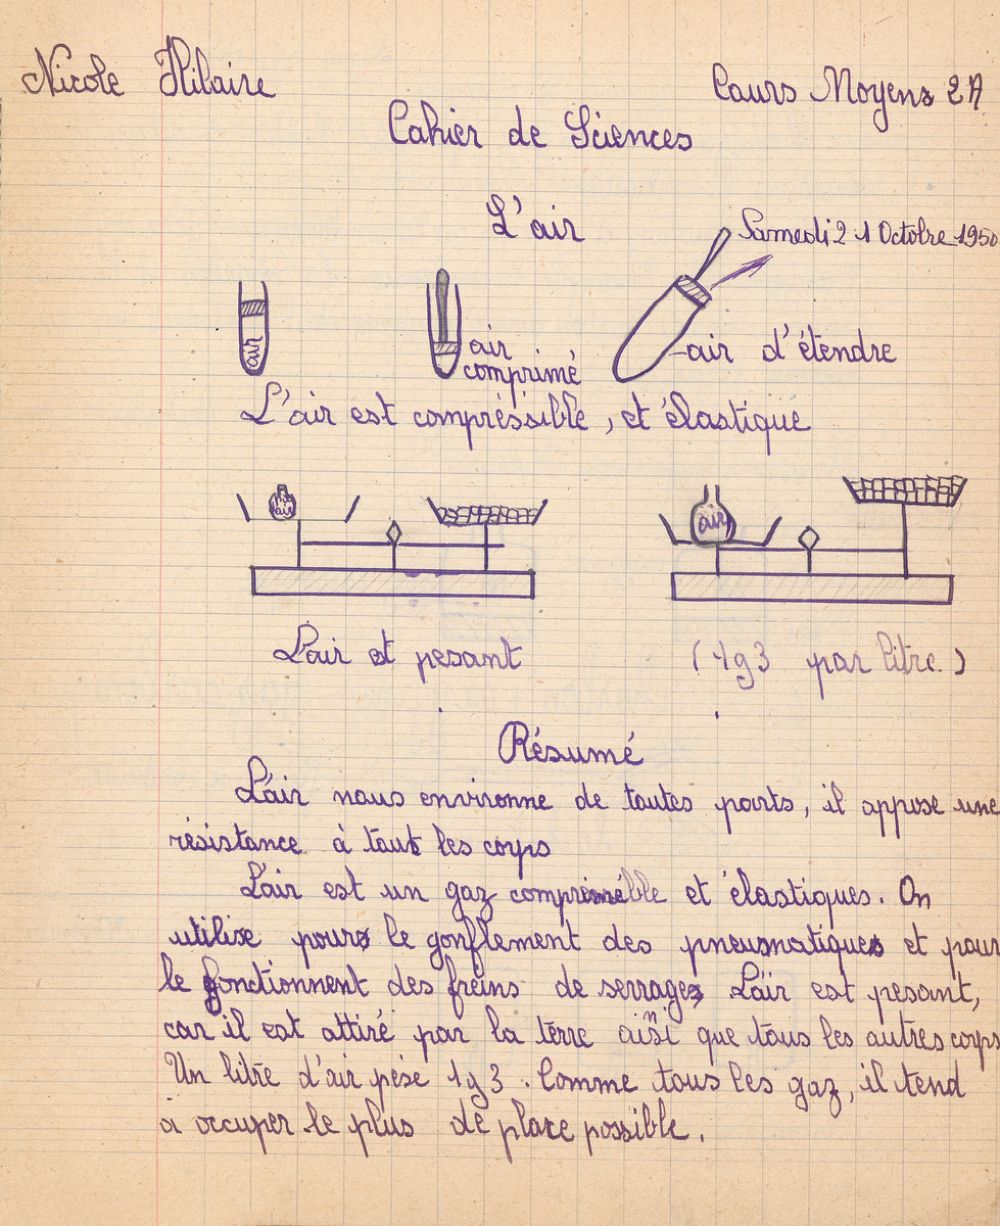 Nicole Hilaire
Cours Moyens 2A
Cahier de Sciences
L'air
Samedi 21 Octobre 1950
air
air
comprimé
air d'étendre
L'air est compréssible, et élastique
air
air
L'air est pesant
(1g3 par litre.)
Résumé
L'air nous environne de toutes parts, il oppose une
résistance à tout les corps
L'air est un gaz compriméble et élastiques. On
utilise pours le gonflement des pneumatiques et pour
le fonctionnent des freins de serrages L'air est pesant,
car il est attiré par la terre ainsi que tous les autres corps
Un litre d'air pèse 1g3. Comme tous les gaz, il tend
à occuper le plus de place possible.